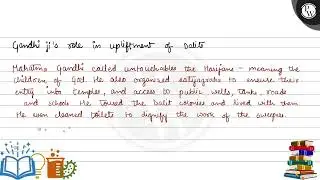 Gandhi ji's role in upliftment of Dalits
Mahatma Gandhi called untouchables the Harijans - meaning the
children of God. He also organised satyagraha to ensure their
entry into temples, and access to public wells, tanks, roads
and schools. He toured the Dalit colonies and lived with them.
He even cleaned toilets to dignify the work of the sweeper.